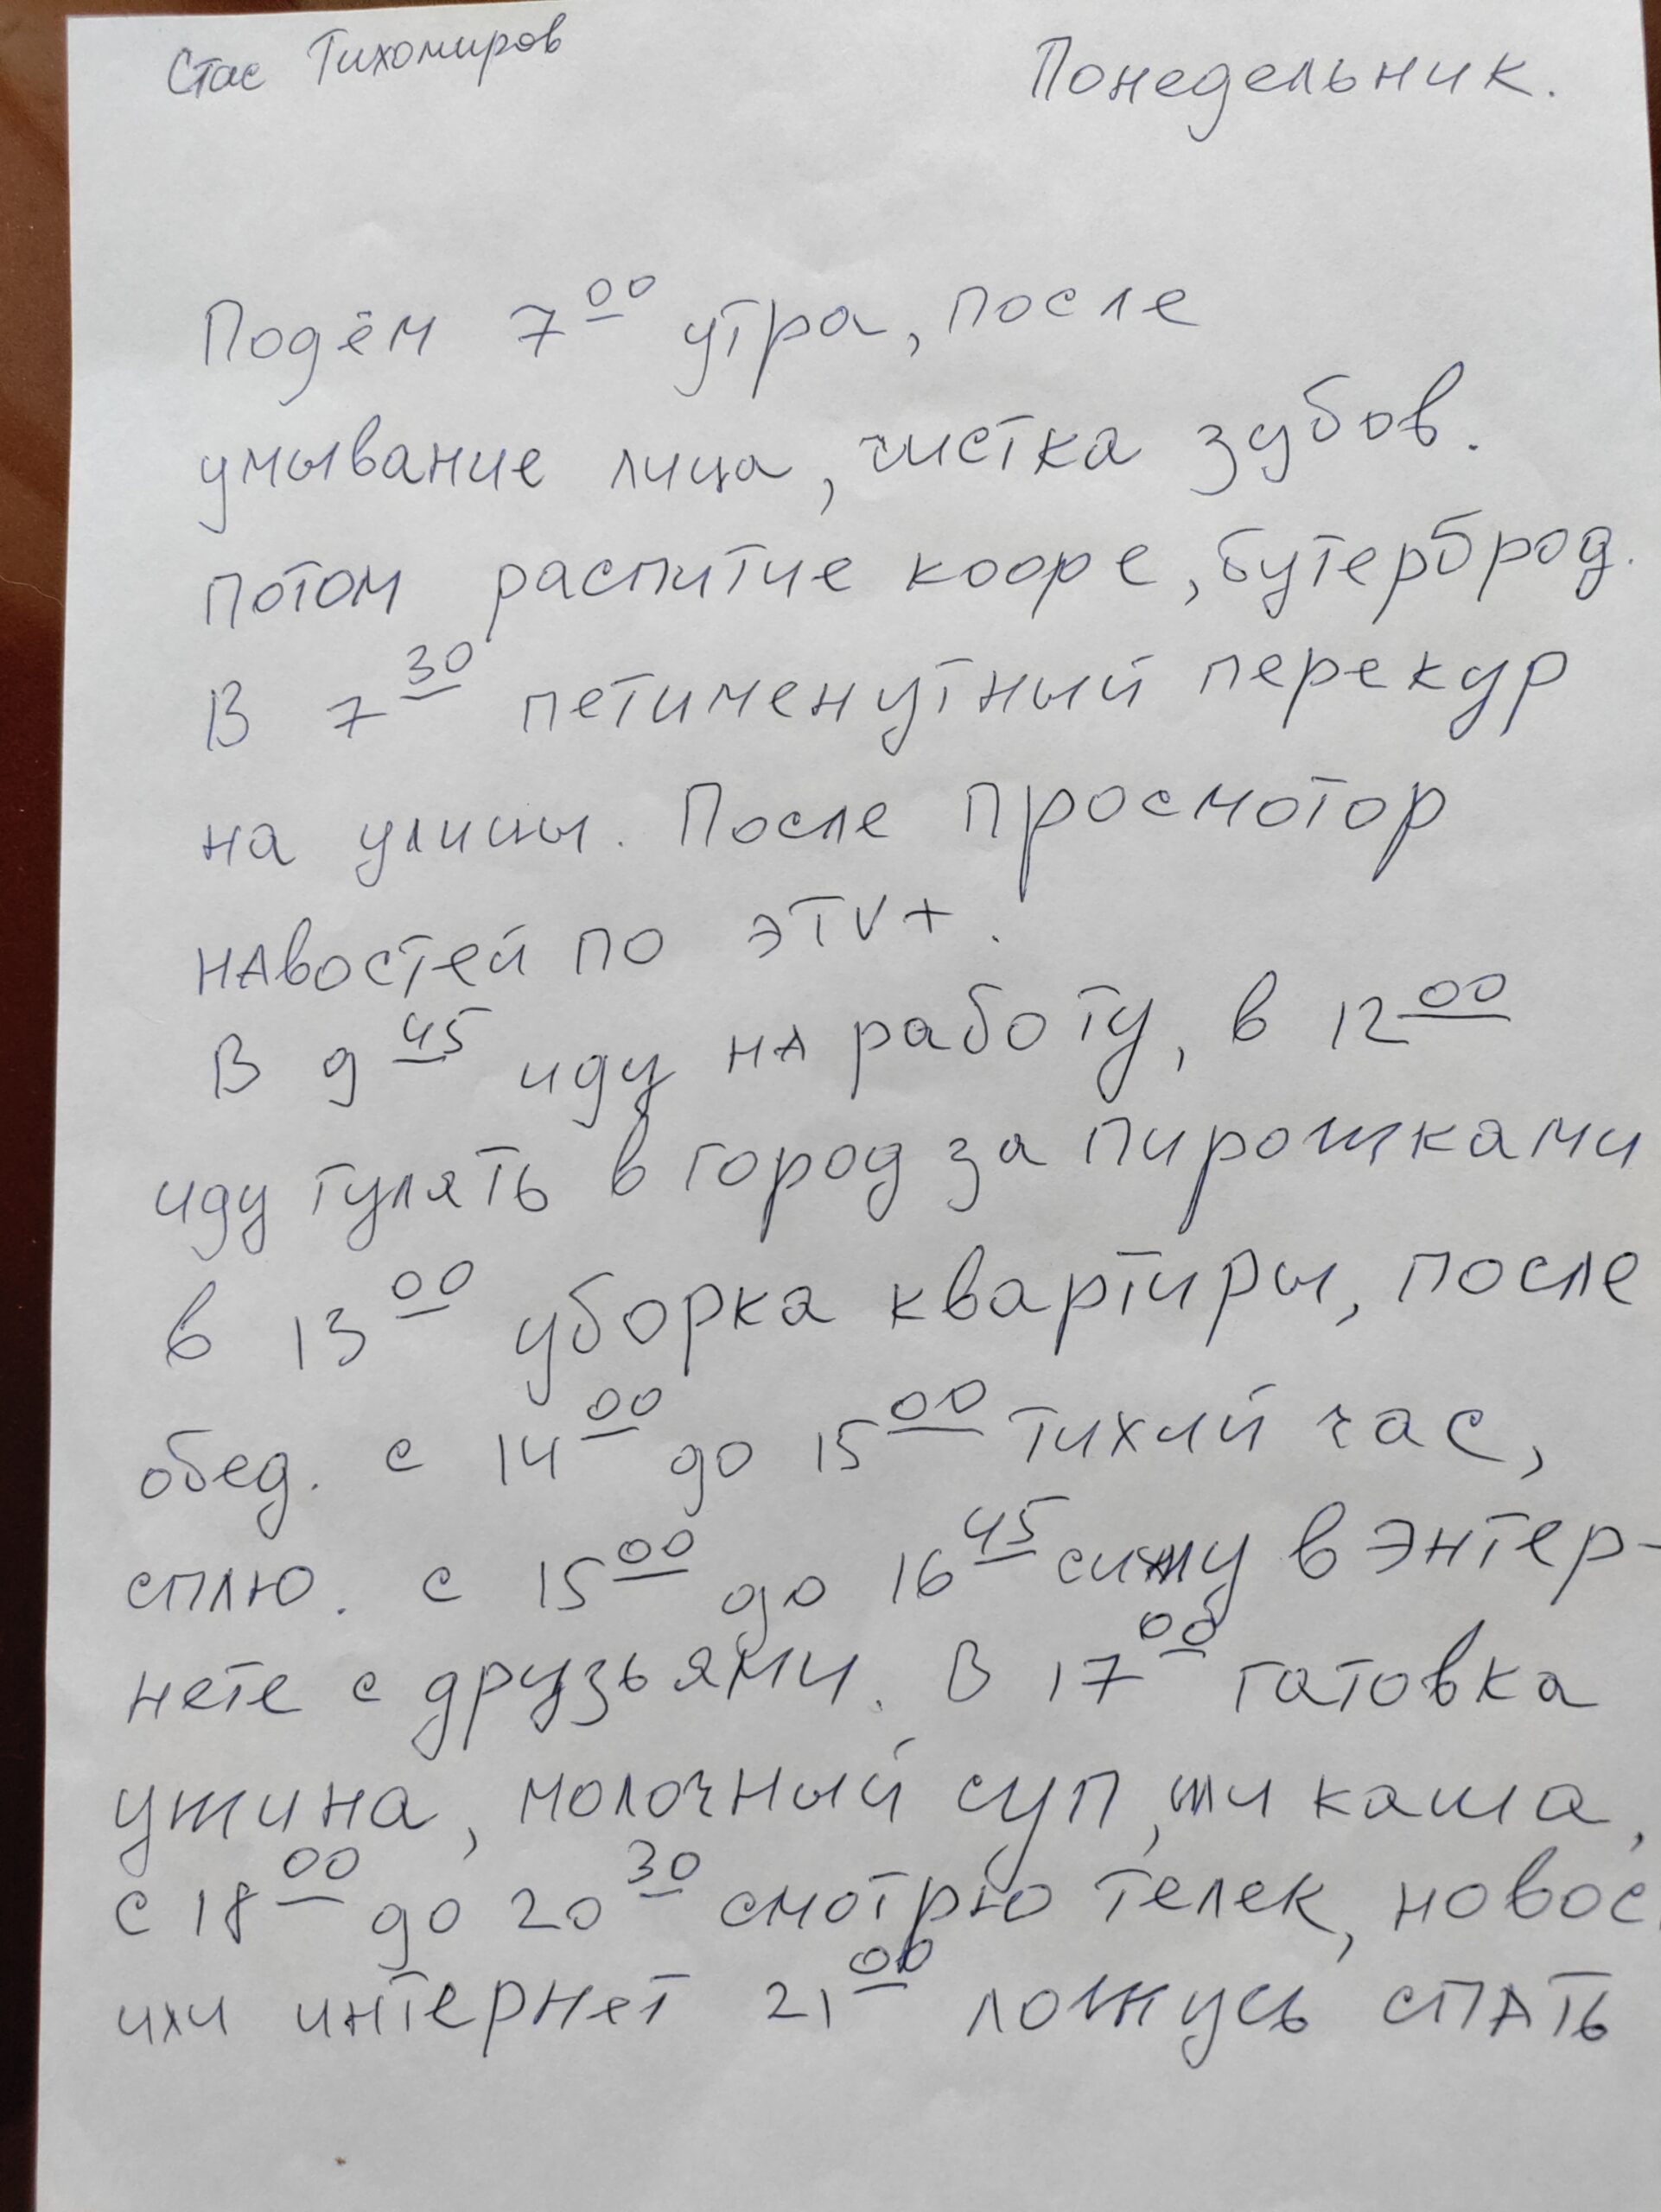 Стас Тихомиров Понедельник.
Подём 7⁰⁰ утра, после
умывание лица, чистка зубов.
потом распитие кофе, бутерброд.
В 7³⁰ петименутный перекур
на улицы. После просмотор
навостей по ЭTV+.
В 9⁴⁵ иду на работу, в 12⁰⁰
иду гулять в город за пирошками
в 13⁰⁰ уборка квартиры, после
обед. с 14⁰⁰ до 15⁰⁰ тихий час,
сплю. с 15⁰⁰ до 16⁴⁵ сижу в энтер-
нете с друзьями. В 17⁰⁰ гатовка
ужина, молочный суп, или каша,
с 18⁰⁰ до 20³⁰ смотрю телек, новос
или интернет 21⁰⁰ ложусь спать